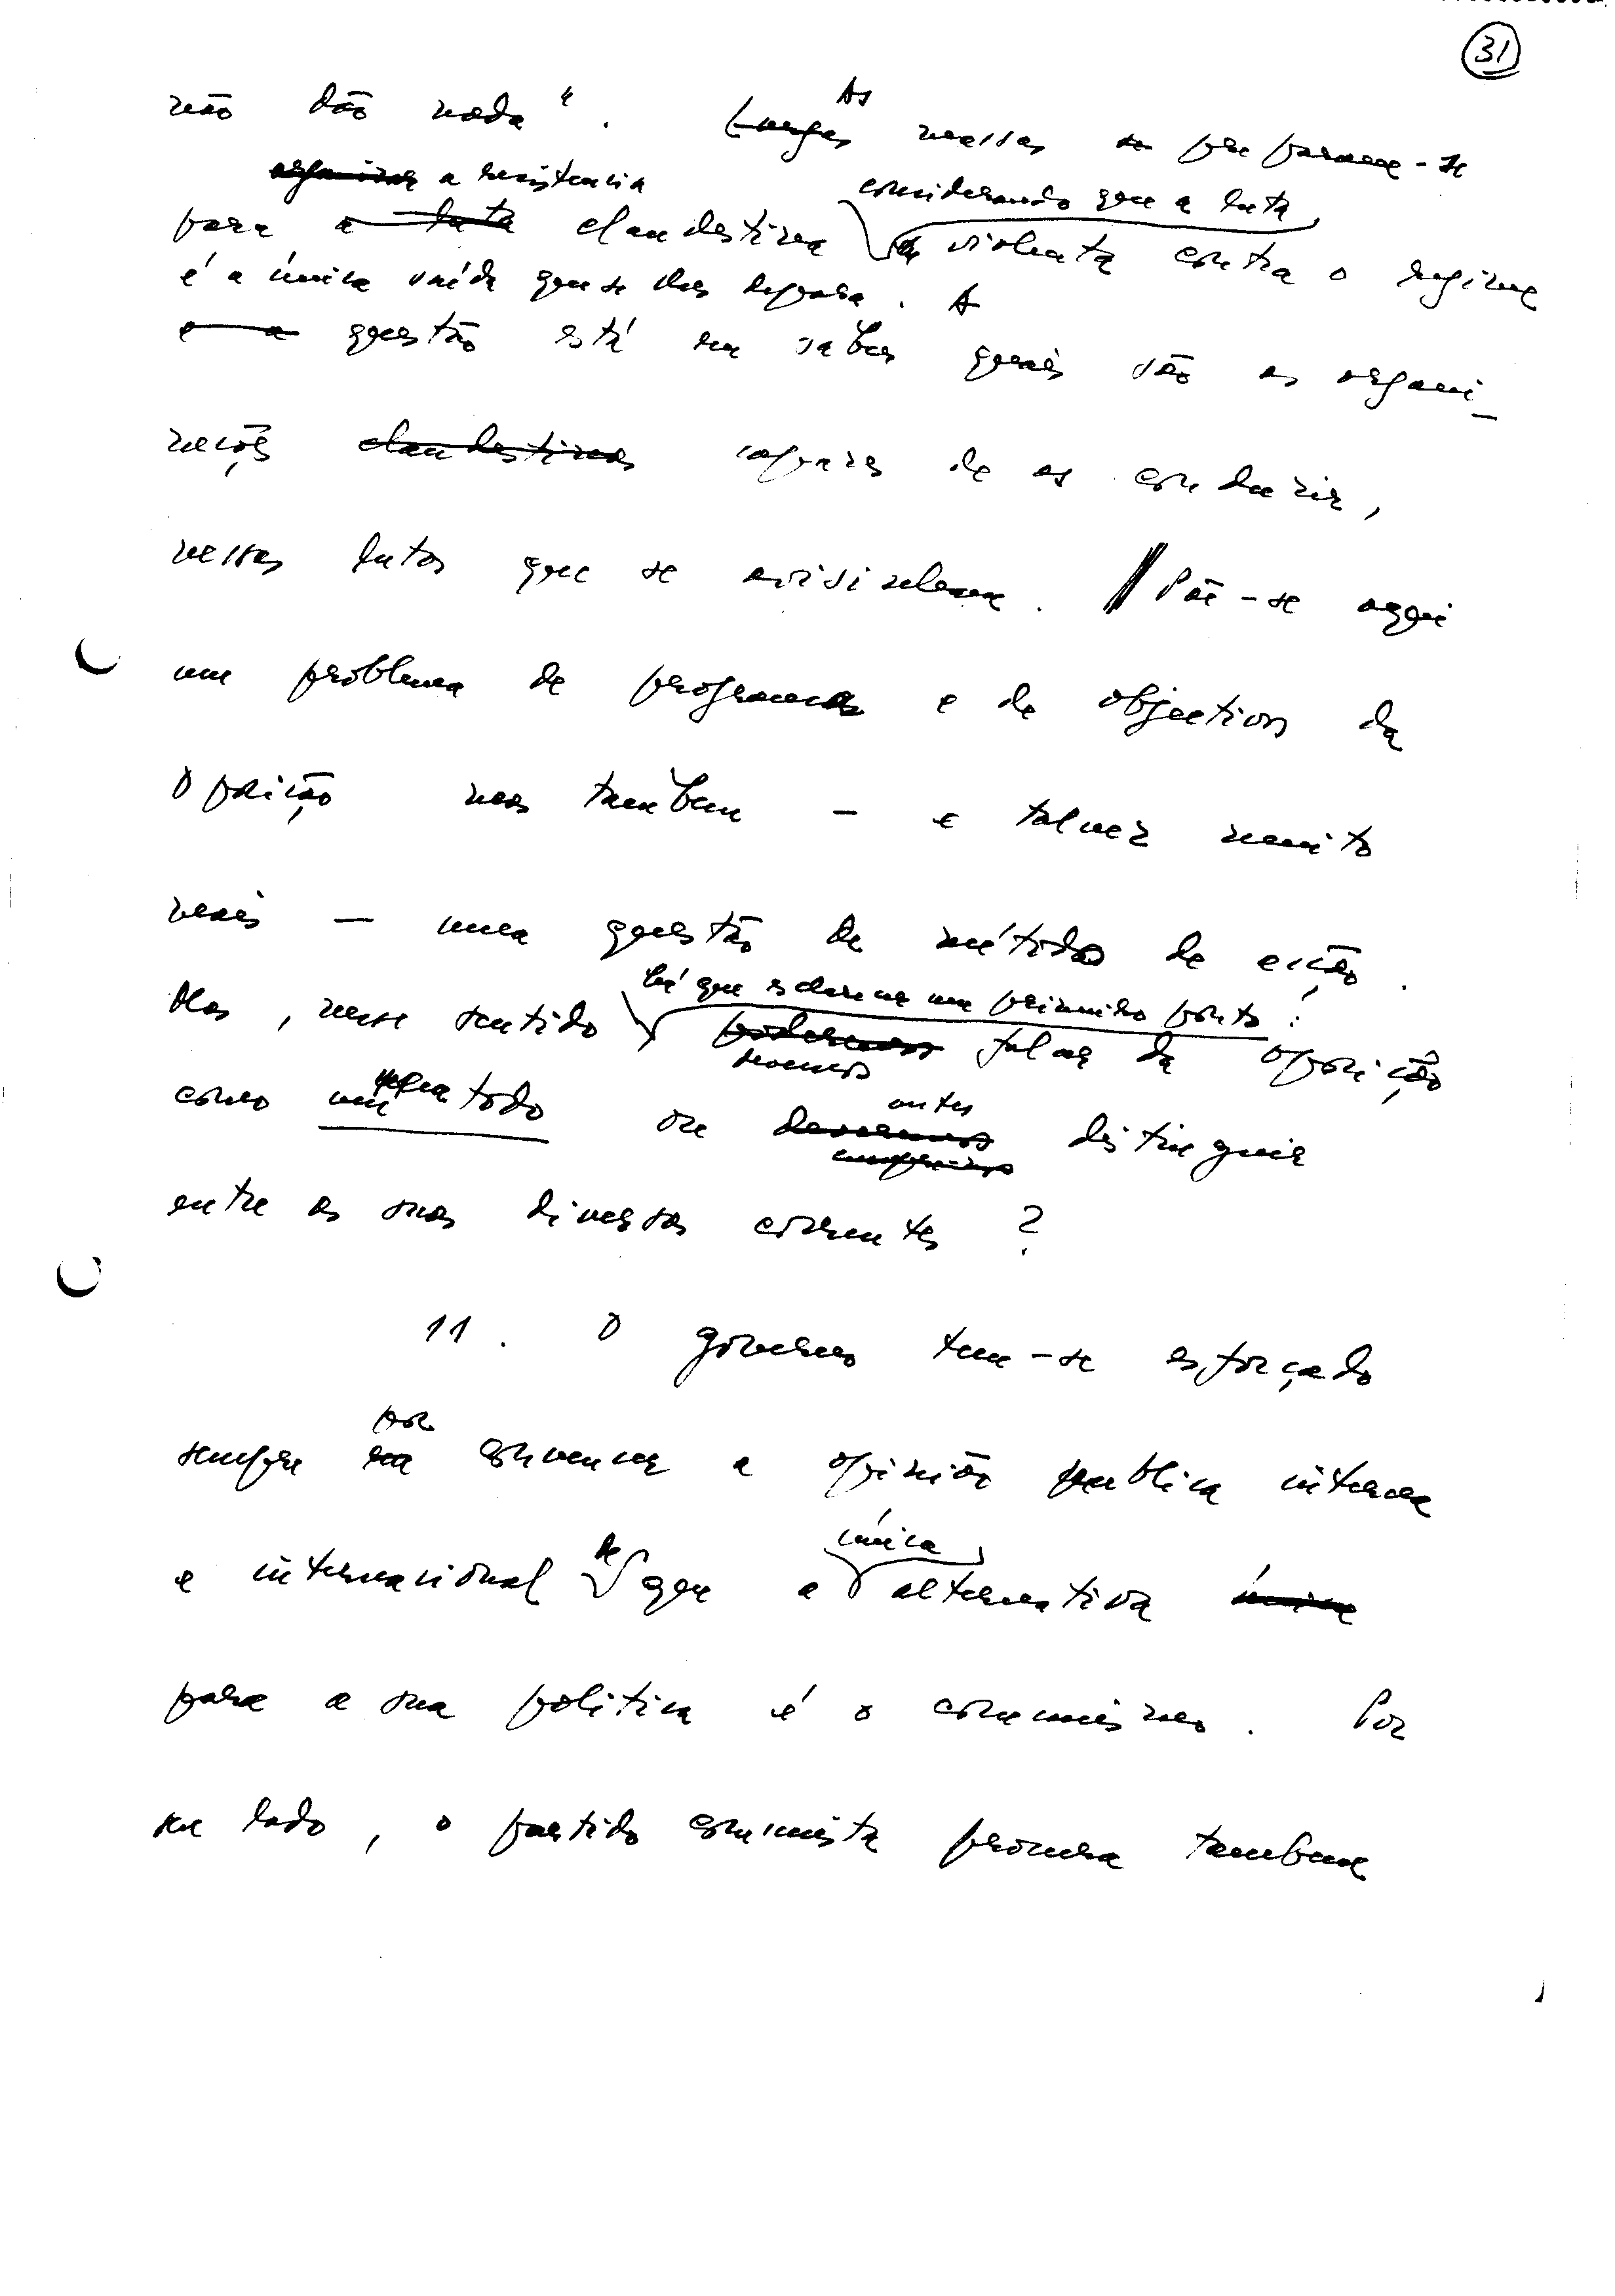 31
não dão nada".
As
Largas massas se preparam-se
organizar a resistencia
considerando que a luta
para a luta clandestina a violenta contra o regime
é a única saída que se lhes depara. A
e a questão está em saber quais são as organi-
zações clandestinas capazes de as conduzir,
nessas lutas que se avizinham. Põe-se aqui
um problema de programa e de objectivos da
Oposição mas tambem - e talvez muito
mais - uma questão de métodos de acção.
há que esclarecer um primeiro ponto:
Mas, nesse sentido podemos falar da oposição
devemos
como um todo ou devemos distinguir
antes
entre as suas diversas correntes?
11. O governo tem-se esforçado
por
sempre em convencer a opinião publica interna
de
única
e internacional que a alternativa única
para a sua politica é o comunismo. Por
seu lado, o partido comunista procura tambem